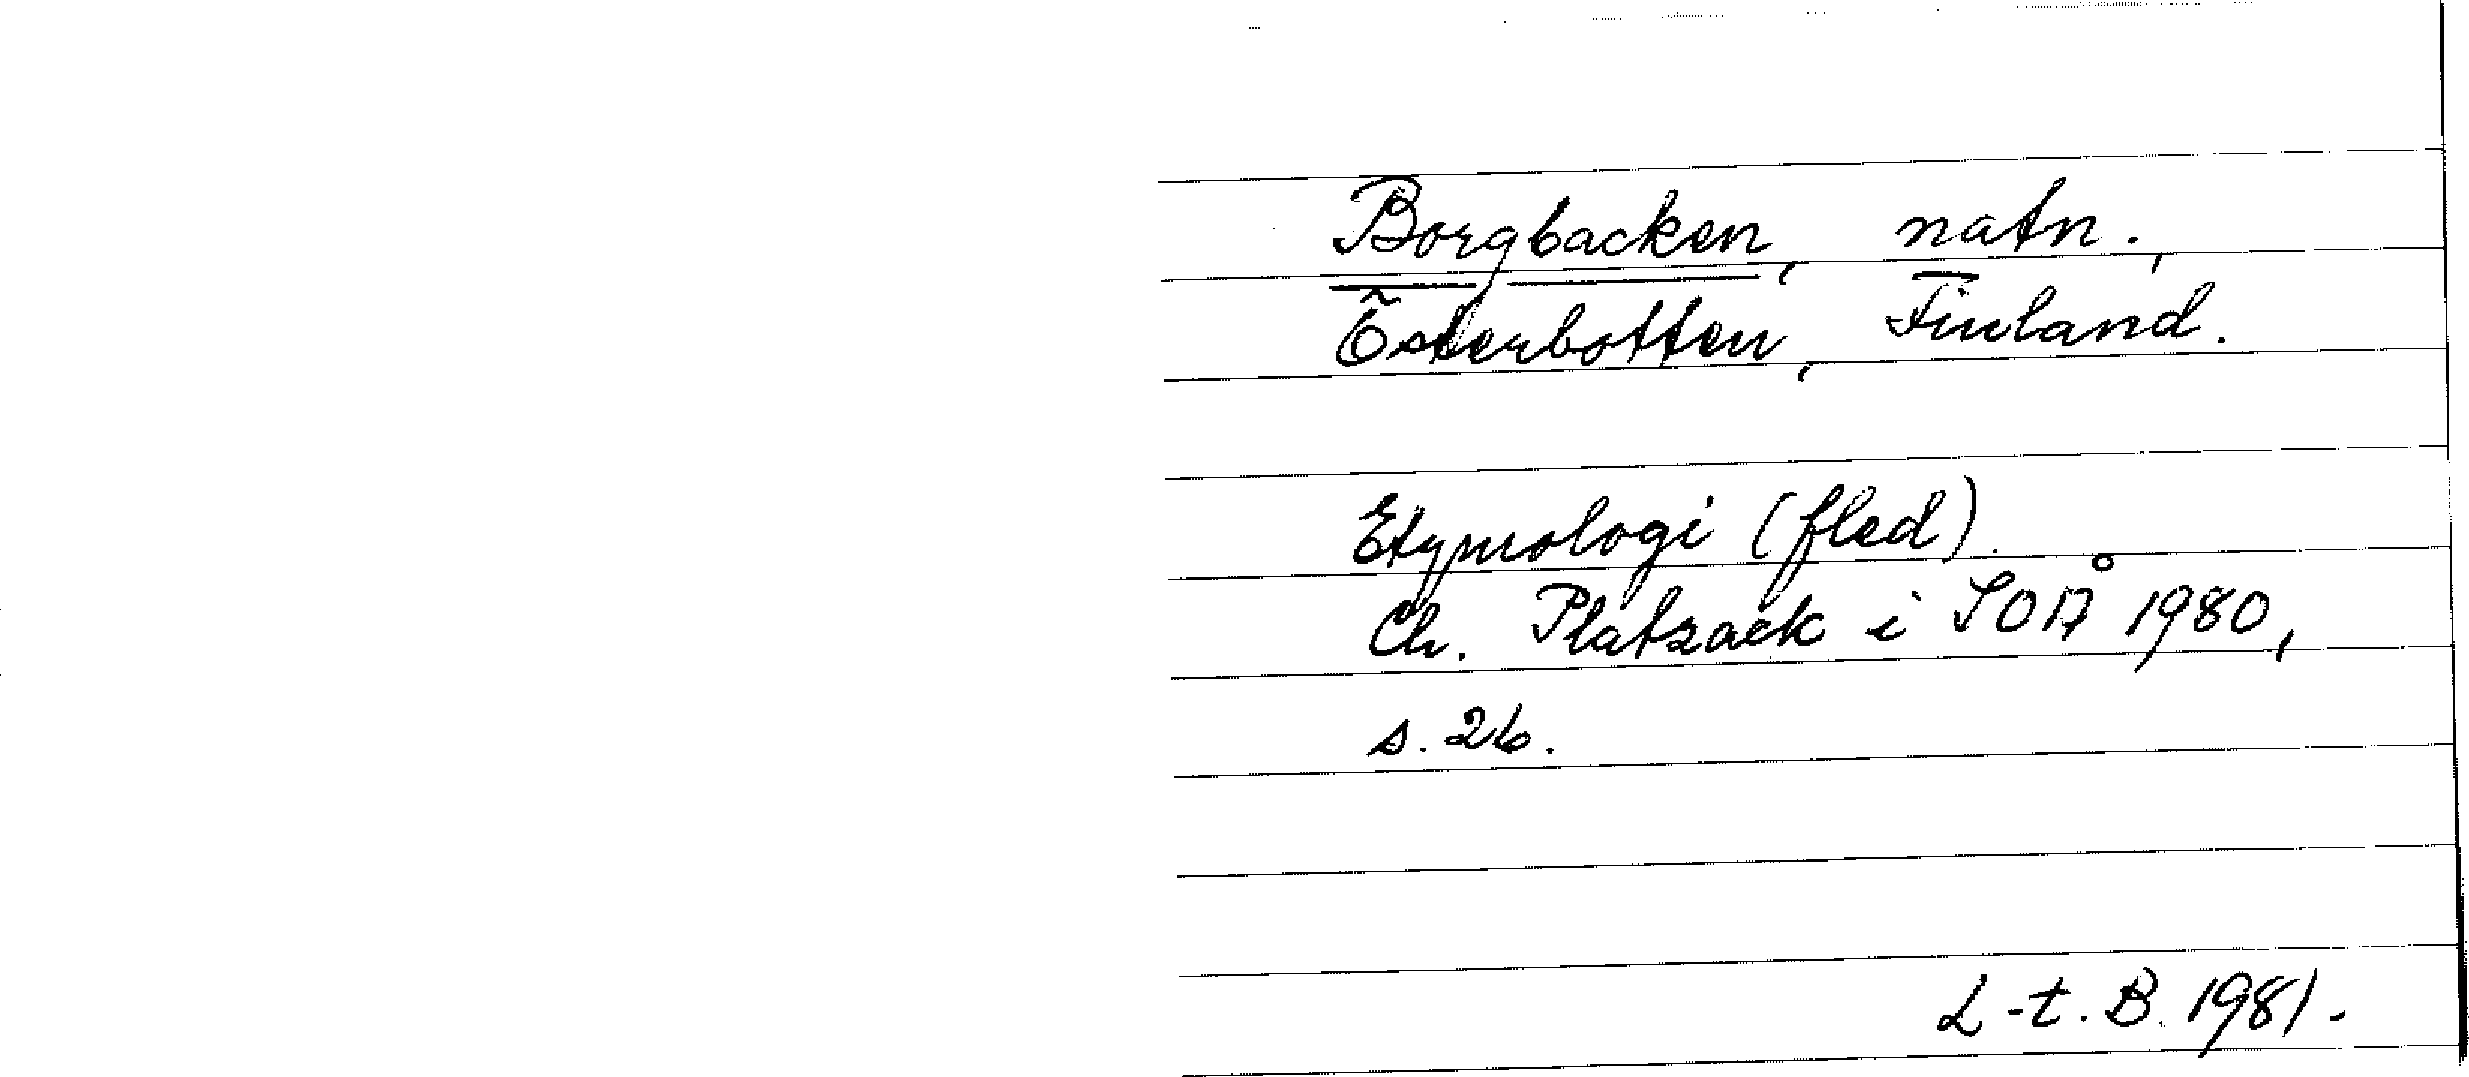 Borgbacken, natn.,
Österbotten, Finland.
Etymologi (fled).
Ch. Platzack i SOÅ 1980,
s. 26.
L-t. B. 1981.